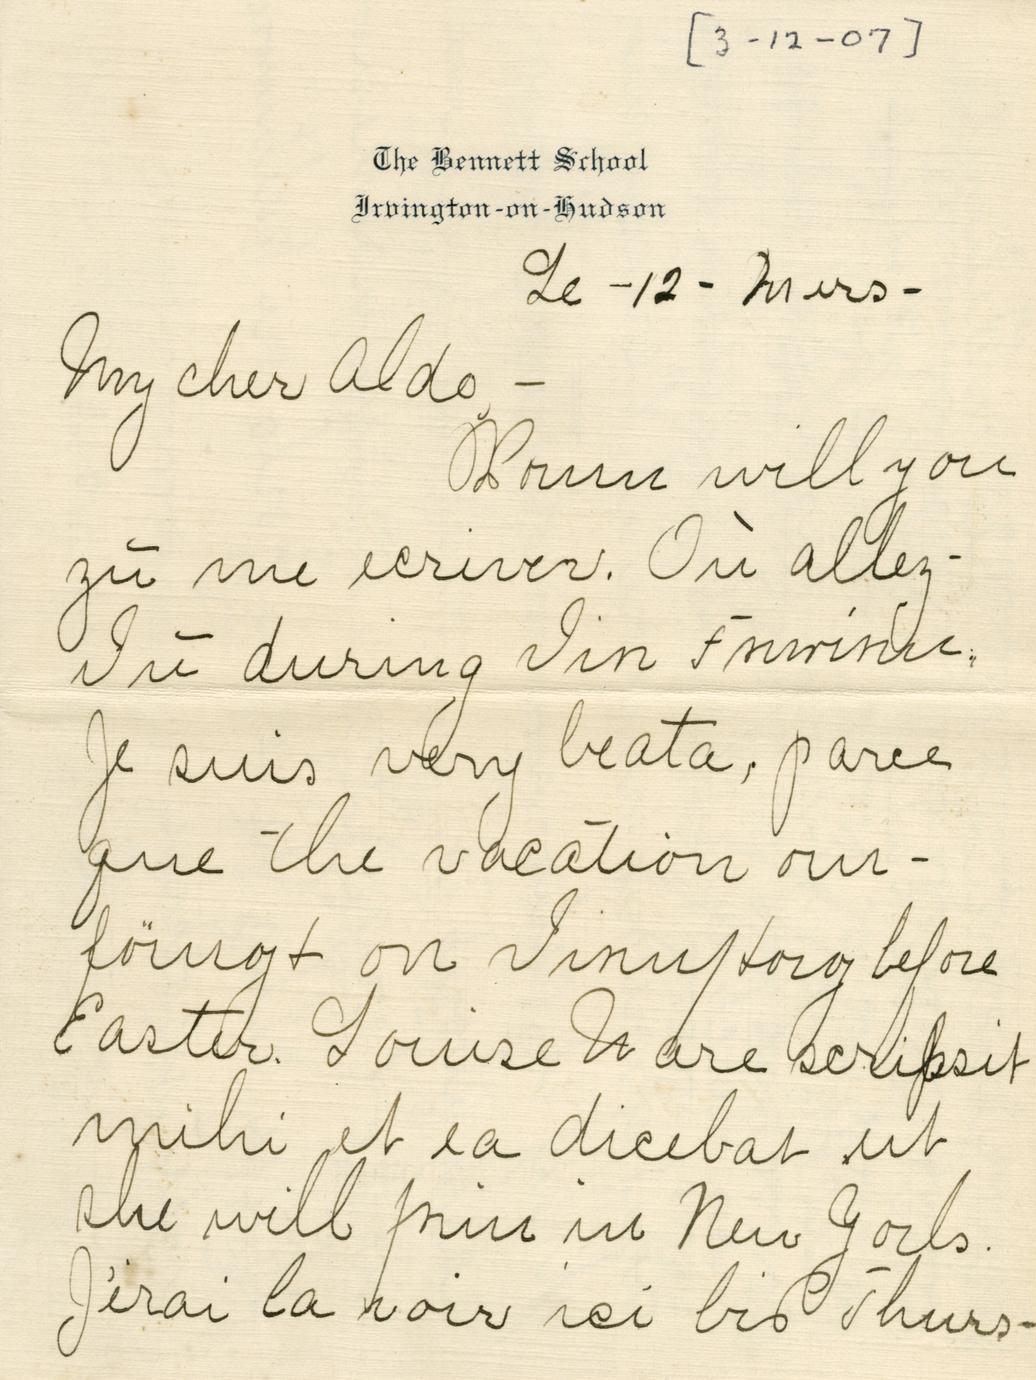 [3-12-07]
The Bennett School
Irvington-on-Hudson
Le -12- Mars-
My cher Aldo, -
Wann will you
zu me ecriver. Où allez-
Tu during Die
Je suis very beata, parce
que the vacation an-
fängt on before
Easter. Louise Ware scripsit
mihi et ea dicebat ut
she will sein in New York.
J'irai la voir ici bis Thurs-